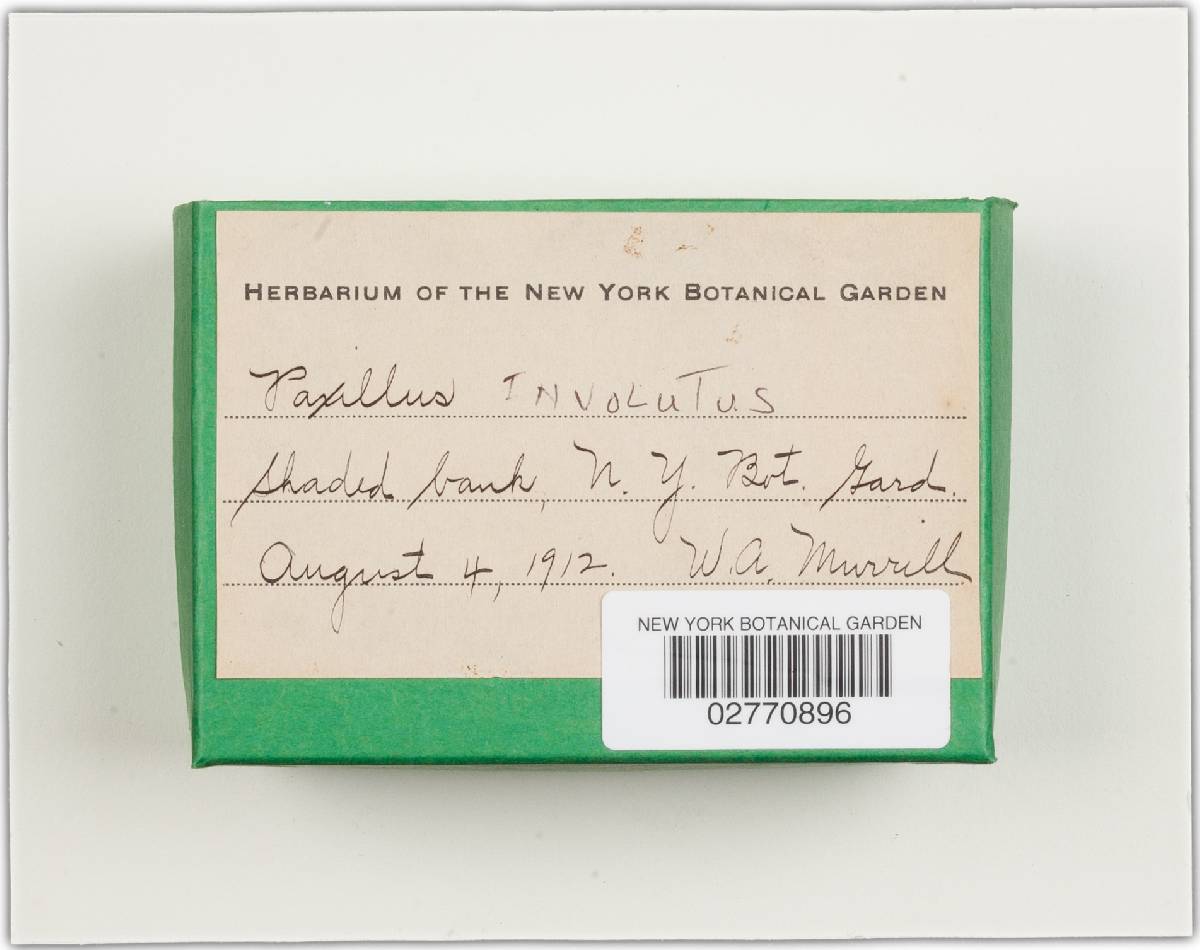 HERBARIUM OF THE NEW YORK BOTANICAL GARDEN
Paxillus INVOLUTUS
Shaded bank, N. Y. Bot. Gard.
August 4, 1912. W.A. Murrill
NEW YORK BOTANICAL GARDEN
02770896